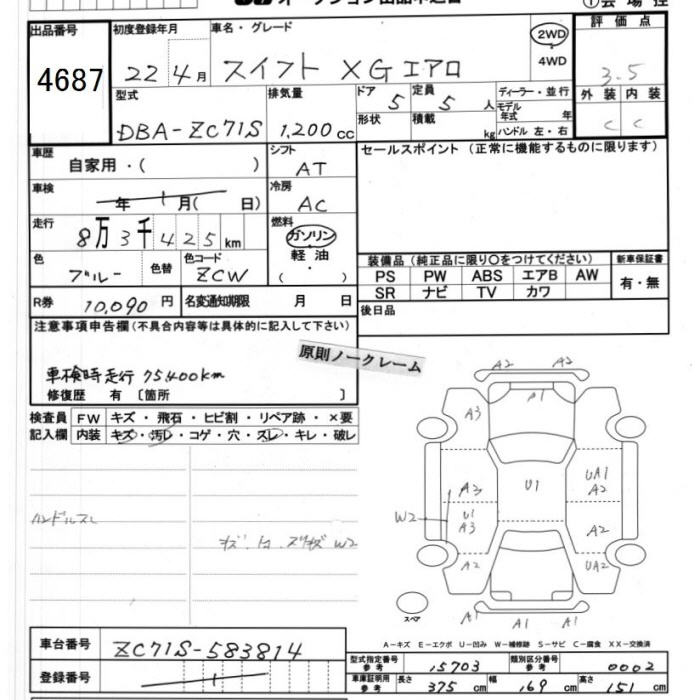 出品番号
4687
初度登録年月
22 4月
車名・グレード
スイフト XGエアロ
2WD
4WD
評価点
3.5
外装 内装
C C
型式
DBA-ZC71S
排気量
1,200cc
ドア 5
定員 5人
形状
積載 kg
ディーラー・並行
モデル年式 年
ハンドル 左・右
車歴
自家用・( )
シフト
AT
車検
年 月( 日)
冷房
AC
走行
8万3千425km
燃料
ガソリン
軽油
( )
色
ブルー
色替
色コード
ZCW
R券 10,090円
名変通知期限 月 日
セールスポイント(正常に機能するものに限ります)
装備品(純正品に限り○をつけてください)
PS PW ABS エアB AW
SR ナビ TV カワ
新車保証書
有・無
後日品
注意事項申告欄(不具合内容等は具体的に記入して下さい)
原則ノークレーム
車検時走行 75,400km
修復歴 有 〔箇所 〕
検査員記入欄
FW キズ・飛石・ヒビ割・リペア跡・×要
内装 キズ・汚レ・コゲ・穴・スレ・キレ・破レ
ハンドルスレ
A2 A2
A1
A3
A3
U1
A3
W2
A2
U1
UA1
A2
A2
UA2
A1 A1 A1
スペア
A-キズ E-エクボ U-凹み W-補修跡 S-サビ C-腐食 XX-交換済
車台番号
ZC71S-583814
登録番号
型式指定番号 参考 15703
類別区分番号 参考 0002
車庫証明用 参考 長さ 375cm 幅 169cm 高さ 151cm